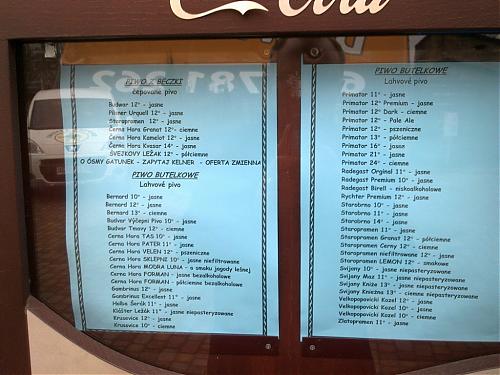 Cola
PIWO Z BECZKI
čepované pivo
Budwar 12° - jasne
Pilsner Urquell 12° - jasne
Staropramen 12° - jasne
Černa Hora Granat 12°- ciemne
Černa Hora Kamelot 12° - jasne
Černa Hora Kvasar 14° - jasne
ŠVEJKOVY LEŽAK 12° - półciemne
O ÓSMY GATUNEK - ZAPYTAJ KELNER - OFERTA ZMIENNA
PIWO BUTELKOWE
Lahvové pivo
Bernard 10° - jasne
Bernard 12° - jasne
Bernard 13° - ciemne
Budvar Výčepni Pivo 10° - jasne
Budvar Tmavy 12° - ciemne
Cerna Hora TAS 10° - jasne
Cerna Hora PATER 11° - jasne
Cerna Hora VELEN 12° - pszeniczne
Cerna Hora SKLEPNI 10° - jasne niefiltrowane
Cerna Hora MODRA LUNA - o smaku jagody leśnej
Cerna Hora FORMAN - jasne bezalkoholowe
Cerna Hora FORMAN - półciemne bezalkoholowe
Gambrinus 12° - jasne
Gambrinus Excellent 11° - jasne
Holba Šerák 11° - jasne
Klášter Ležák 11° - jasne niepasteryzowane
Krusovice 12° - jasne
Krusovice 10° - ciemne
PIWO BUTELKOWE
Lahvové pivo
Primator 11° - jasne
Primator 12° Premium - jasne
Primator 12° Dark - ciemne
Primator 12° - Pale Ale
Primator 12° - pszeniczne
Primator 13° - półciemne
Primator 16° - jasne
Primator 21° - jasne
Primator 24° - ciemne
Radegast Orginal 11° - jasne
Radegast Premium 10° - jasne
Radegast Birell - niskoalkoholowe
Rychter Premium 12° - jasne
Starobrno 10° - jasne
Starobrno 11° - jasne
Starobrno 14° - jasne
Staropramen 11° - jasne
Staropramen Granat 12° - półciemne
Staropramen Cerny 12° - ciemne
Staropramen niefiltrowane 12° - jasne
Staropramen LEMON 12° - smakowe
Svijany 10° - jasne niepasteryzowane
Svijany Maz 11° - jasne niepasteryzowane
Svijany Kniže 13° - jasne niepasteryzowane
Svijany Knežna 13° - ciemne niepasteryzowane
Velkopopovicki Kozel 12° - jasne
Velkopopovicki Kozel 10° - jasne
Velkopopovicki Kozel 10° - ciemne
Zlatopramen 11° - jasne